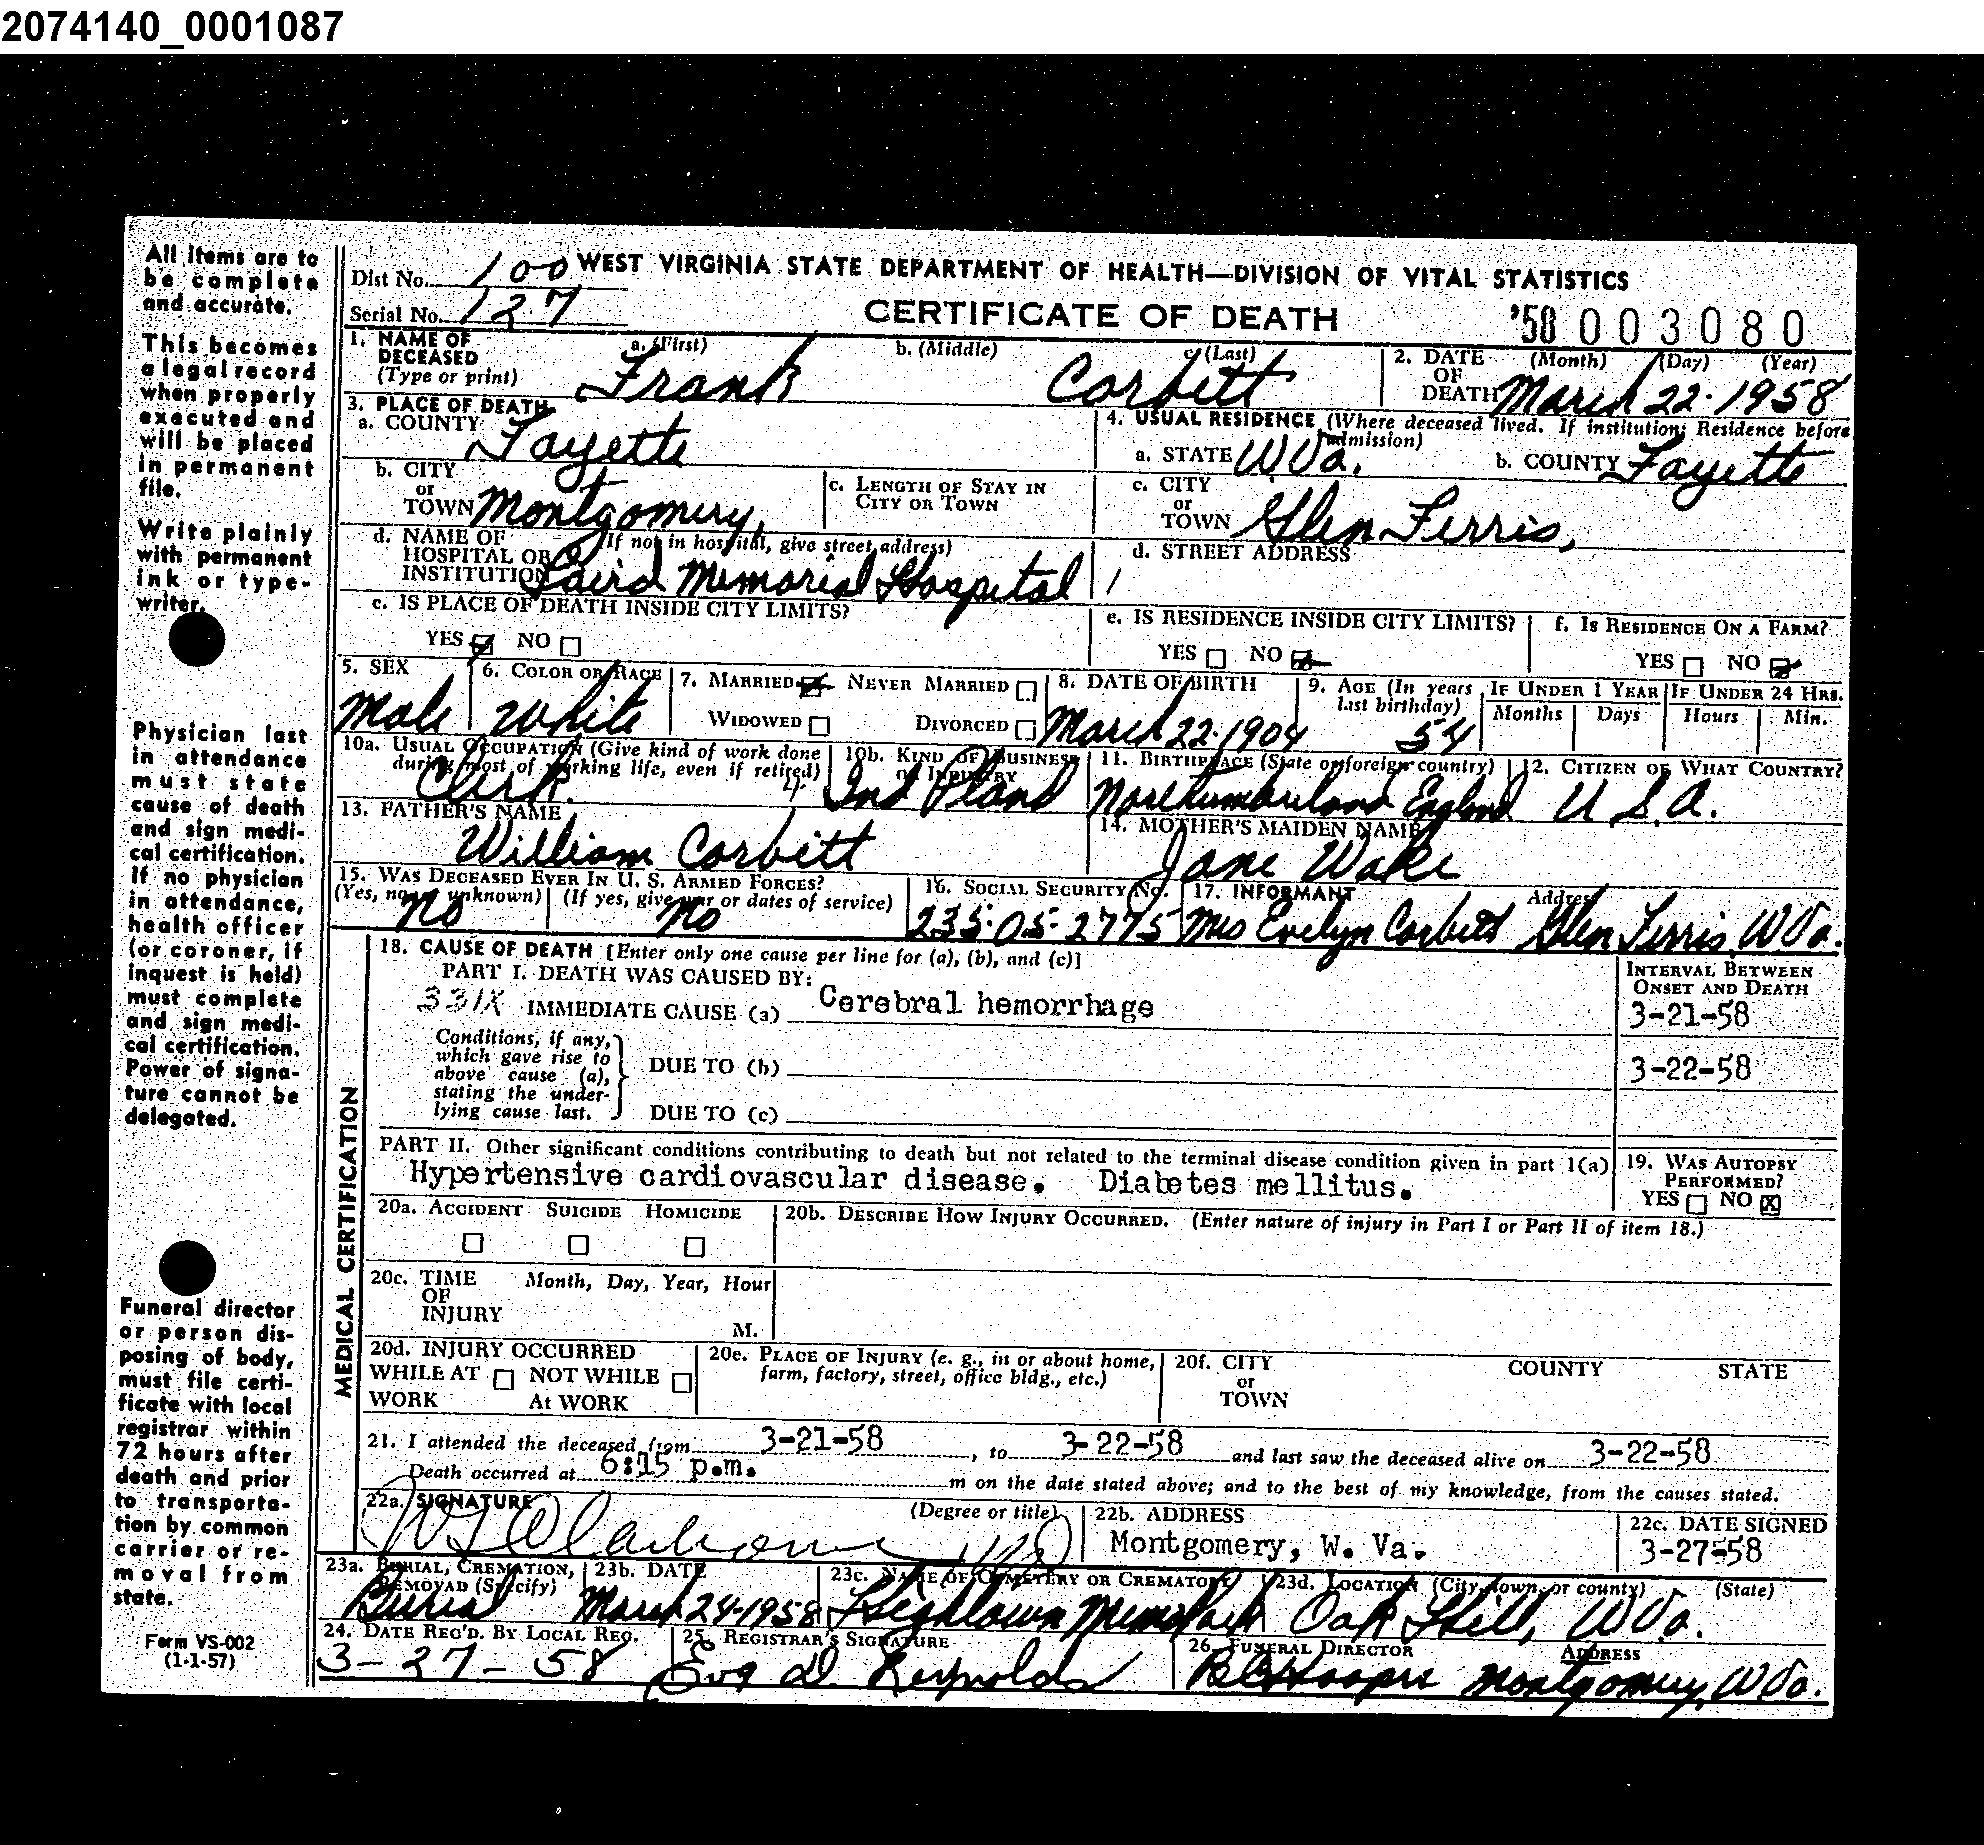 2074140_0001087
All items are to be complete and accurate.
This becomes a legal record when properly executed and will be placed in permanent file.
Write plainly with permanent ink or type-writer.
Physician last in attendance must state cause of death and sign medi-cal certification. If no physician in attendance, health officer (or coroner, if inquest is held) must complete and sign medi-cal certification. Power of signa-ture cannot be delegated.
Funeral director or person dis-posing of body, must file certi-ficate with local registrar within 72 hours after death and prior to transporta-tion by common carrier or re-moval from state.
Form VS-002
(1-1-57)
Dist No. 100 WEST VIRGINIA STATE DEPARTMENT OF HEALTH—DIVISION OF VITAL STATISTICS
Serial No. 127 CERTIFICATE OF DEATH '58 003080
1. NAME OF DECEASED (Type or print) a. (First) Frank b. (Middle) c. (Last) Corbitt 2. DATE OF DEATH (Month) (Day) (Year) March 22-1958
3. PLACE OF DEATH
a. COUNTY Fayette
4. USUAL RESIDENCE (Where deceased lived. If institution: Residence before admission)
a. STATE W Va. b. COUNTY Fayette
b. CITY or TOWN Montgomery, c. LENGTH OF STAY IN CITY OR TOWN
c. CITY or TOWN Glen Ferris,
d. NAME OF HOSPITAL OR INSTITUTION (If not in hospital, give street address) Laird Memorial Hospital
d. STREET ADDRESS
e. IS PLACE OF DEATH INSIDE CITY LIMITS? YES NO
e. IS RESIDENCE INSIDE CITY LIMITS? YES NO
f. IS RESIDENCE ON A FARM? YES NO
5. SEX Male 6. COLOR OR RACE White 7. MARRIED NEVER MARRIED WIDOWED DIVORCED 8. DATE OF BIRTH March 22-1904 9. AGE (In years last birthday) 54 IF UNDER 1 YEAR Months Days IF UNDER 24 HRS. Hours Min.
10a. USUAL OCCUPATION (Give kind of work done during most of working life, even if retired) Clerk. 10b. KIND OF BUSINESS OR INDUSTRY Ind Pland 11. BIRTHPLACE (State or foreign country) Northumberland England 12. CITIZEN OF WHAT COUNTRY? U.S.A.
13. FATHER'S NAME William Corbitt 14. MOTHER'S MAIDEN NAME Jane Wake
15. WAS DECEASED EVER IN U. S. ARMED FORCES? (Yes, no, or unknown) No (If yes, give war or dates of service) No 16. SOCIAL SECURITY NO. 235-05-2775 17. INFORMANT Mrs Evelyn Corbitt Address Glen Ferris, W Va.
MEDICAL CERTIFICATION
18. CAUSE OF DEATH [Enter only one cause per line for (a), (b), and (c)] INTERVAL BETWEEN ONSET AND DEATH
PART I. DEATH WAS CAUSED BY:
331X IMMEDIATE CAUSE (a) Cerebral hemorrhage 3-21-58
Conditions, if any, which gave rise to above cause (a), stating the under-lying cause last.
DUE TO (b) 3-22-58
DUE TO (c)
PART II. Other significant conditions contributing to death but not related to the terminal disease condition given in part 1(a)
Hypertensive cardiovascular disease. Diabetes mellitus.
19. WAS AUTOPSY PERFORMED? YES NO X
20a. ACCIDENT SUICIDE HOMICIDE 20b. DESCRIBE HOW INJURY OCCURRED. (Enter nature of injury in Part I or Part II of item 18.)
20c. TIME OF INJURY Month, Day, Year, Hour M.
20d. INJURY OCCURRED WHILE AT WORK NOT WHILE At WORK 20e. PLACE OF INJURY (e. g., in or about home, farm, factory, street, office bldg., etc.) 20f. CITY or TOWN COUNTY STATE
21. I attended the deceased from 3-21-58, to 3-22-58 and last saw the deceased alive on 3-22-58
Death occurred at 6:15 p.m. m on the date stated above; and to the best of my knowledge, from the causes stated.
22a. SIGNATURE (Degree or title) 22b. ADDRESS Montgomery, W. Va. 22c. DATE SIGNED 3-27-58
23a. BURIAL, CREMATION, REMOVAL (Specify) Burial 23b. DATE March 24-1958 23c. NAME OF CEMETERY OR CREMATORY Hightown Mem Park 23d. LOCATION (City, town, or county) (State) Oak Hill, W Va.
24. DATE REC'D. BY LOCAL REG. 3-27-58 25. REGISTRAR'S SIGNATURE Eva D. Reynolds 26. FUNERAL DIRECTOR ADDRESS Montgomery, W Va.